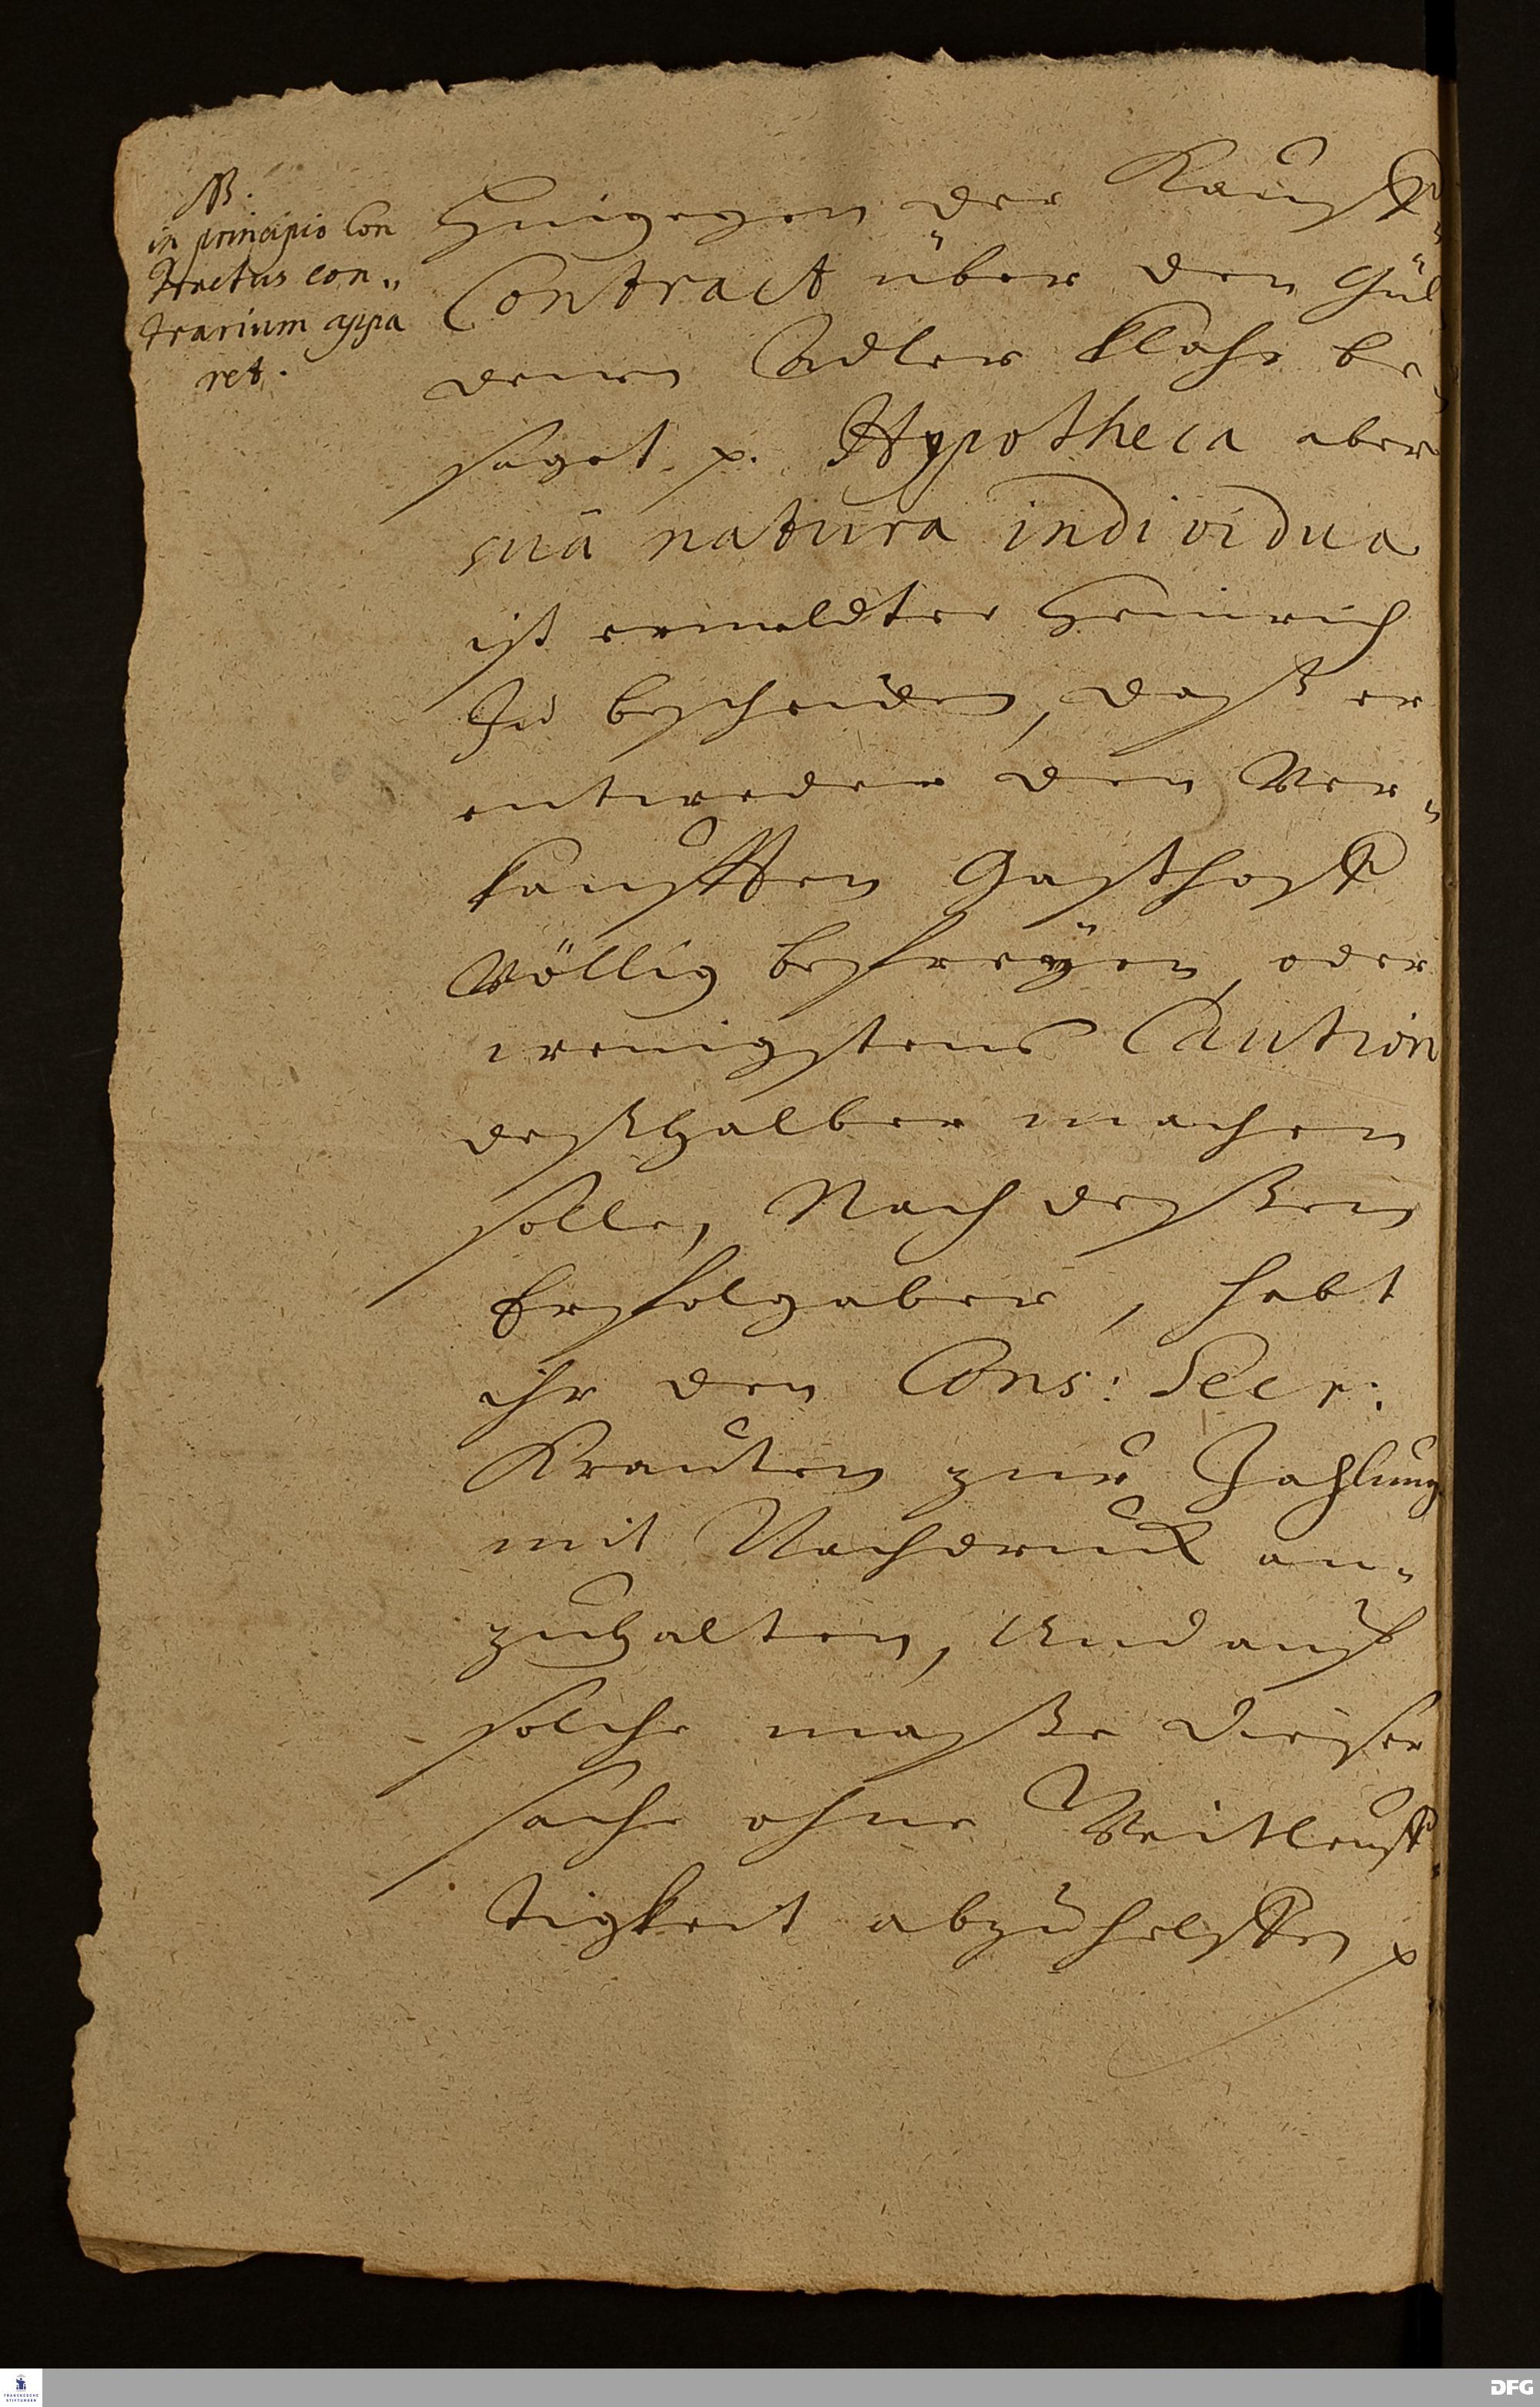 NB.
in principio Con
tractus con„
trarium appa
ret.
Hingegen der Kauff„
Contract über den Gül„
denen Adler klahr be„
saget p. Hypotheca aber
suâ natura individua
ist ermeldter Heinrich
zu bescheiden, daß er
entweder den Ver„
kaufften Gasthoff
völlig befreyen, oder
wenigstens Caution
deßhalber machen
solle, Nach deßen
Erfolg aber, habt
ihr den Cons: Secr:
Krauten zur Zahlung
mit Nachdruck an„
zuhalten, Und auf
solche maße dieser
sache ohne Weitleuff„
tigkeit abzuhelffen p
FRANCKESCHE
STIFTUNGEN
DFG